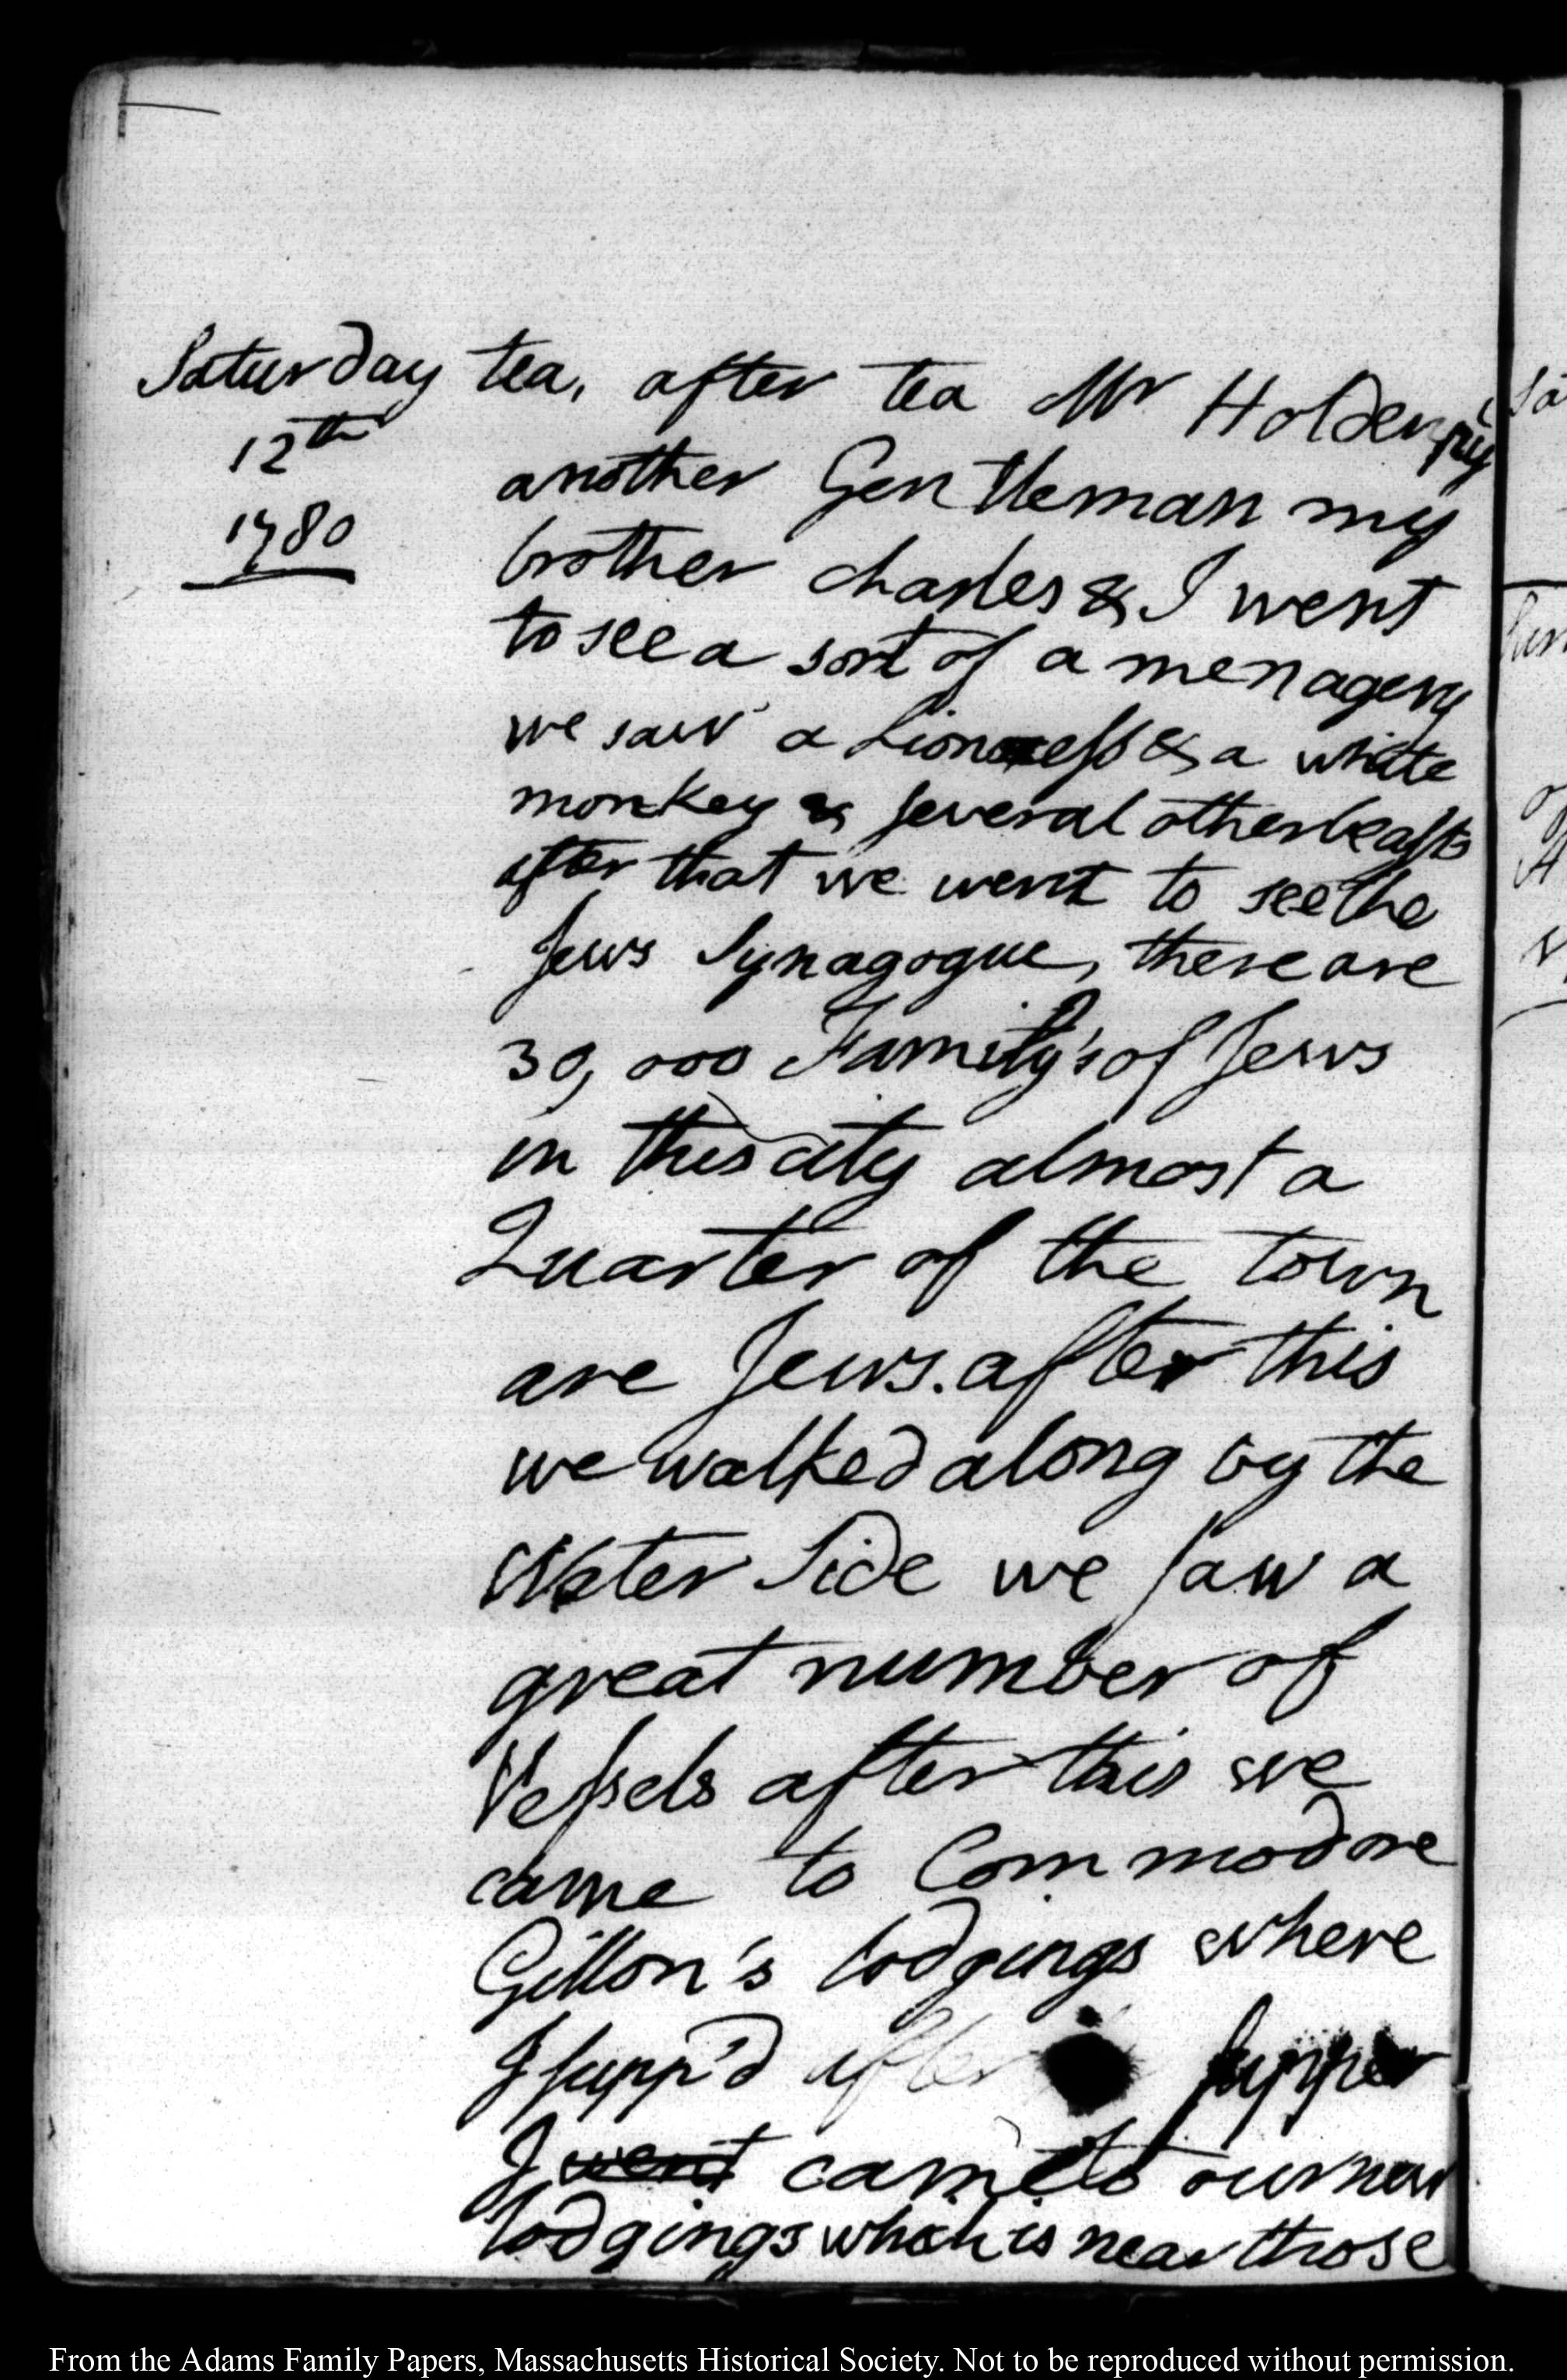 Saturday
12th
1780
tea, after tea Mr Holden my
another Gentleman my
brother charles & I went
to see a sort of a menagery
we saw a Lioness & a white
monkey & several other beasts
after that we went to see the
Jews Synagogue, there are
30,000 Family's of Jews
in this city almost a
Quarter of the town
are Jews. after this
we walked along by the
Water Side we saw a
great number of
Vessels after this we
came to Commodore
Gillon's lodgings where
I supp'd after supper
I went came to our new
lodgings which is near those
From the Adams Family Papers, Massachusetts Historical Society. Not to be reproduced without permission.